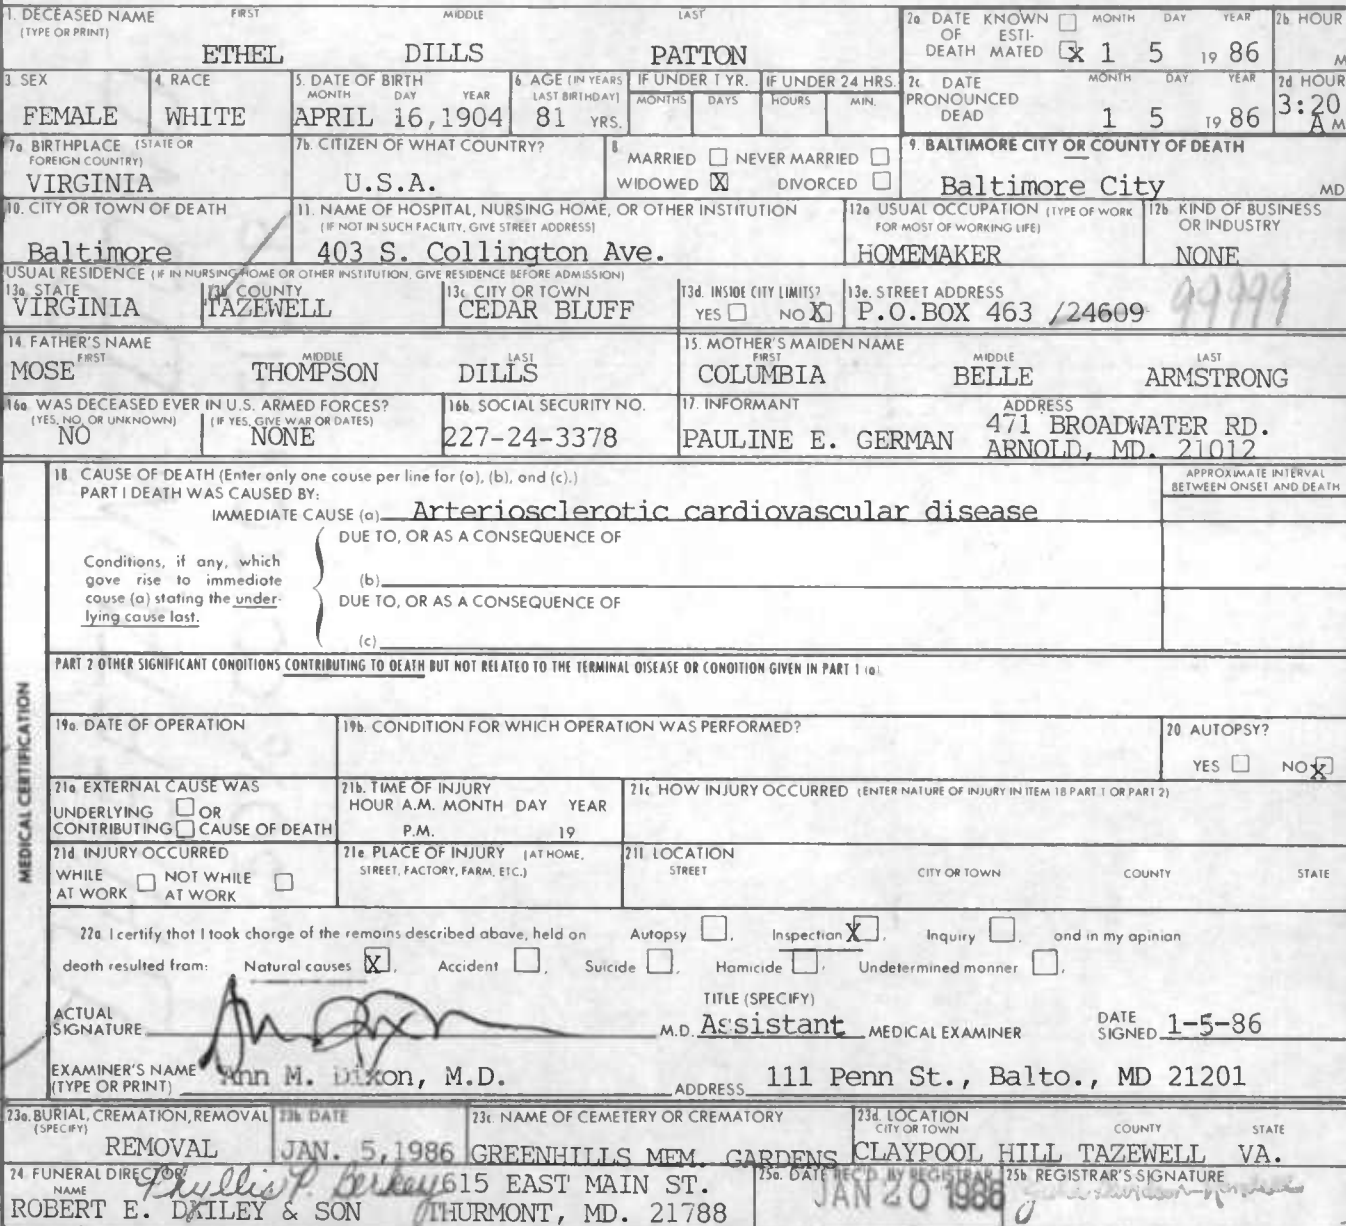 1. DECEASED NAME (TYPE OR PRINT) FIRST MIDDLE LAST
ETHEL DILLS PATTON
2a. DATE OF DEATH KNOWN ESTI-MATED X MONTH DAY YEAR
1 5 1986
2b. HOUR M
3. SEX
FEMALE
4. RACE
WHITE
5. DATE OF BIRTH MONTH DAY YEAR
APRIL 16,1904
6. AGE (IN YEARS LAST BIRTHDAY)
81 YRS.
IF UNDER 1 YR. MONTHS DAYS
IF UNDER 24 HRS. HOURS MIN.
2c. DATE PRONOUNCED DEAD MONTH DAY YEAR
1 5 1986
2d HOUR
3:20 A M
7a. BIRTHPLACE (STATE OR FOREIGN COUNTRY)
VIRGINIA
7b. CITIZEN OF WHAT COUNTRY?
U.S.A.
8. MARRIED NEVER MARRIED
WIDOWED X DIVORCED
9. BALTIMORE CITY OR COUNTY OF DEATH
Baltimore City MD
10. CITY OR TOWN OF DEATH
Baltimore
11. NAME OF HOSPITAL, NURSING HOME, OR OTHER INSTITUTION
(IF NOT IN SUCH FACILITY, GIVE STREET ADDRESS)
403 S. Collington Ave.
12a USUAL OCCUPATION (TYPE OF WORK FOR MOST OF WORKING LIFE)
HOMEMAKER
12b. KIND OF BUSINESS OR INDUSTRY
NONE
USUAL RESIDENCE (IF IN NURSING HOME OR OTHER INSTITUTION, GIVE RESIDENCE BEFORE ADMISSION)
13a. STATE
VIRGINIA
13b. COUNTY
TAZEWELL
13c. CITY OR TOWN
CEDAR BLUFF
13d. INSIDE CITY LIMITS?
YES NO X
13e. STREET ADDRESS
P.O.BOX 463 /24609
99999
14. FATHER'S NAME FIRST MIDDLE LAST
MOSE THOMPSON DILLS
15. MOTHER'S MAIDEN NAME FIRST MIDDLE LAST
COLUMBIA BELLE ARMSTRONG
16a. WAS DECEASED EVER IN U.S. ARMED FORCES?
(YES, NO, OR UNKNOWN) (IF YES, GIVE WAR OR DATES)
NO NONE
16b. SOCIAL SECURITY NO.
227-24-3378
17. INFORMANT ADDRESS
PAULINE E. GERMAN 471 BROADWATER RD.
ARNOLD, MD. 21012
MEDICAL CERTIFICATION
18. CAUSE OF DEATH (Enter only one cause per line for (a), (b), and (c).)
PART I DEATH WAS CAUSED BY:
APPROXIMATE INTERVAL BETWEEN ONSET AND DEATH
IMMEDIATE CAUSE (a) Arteriosclerotic cardiovascular disease
DUE TO, OR AS A CONSEQUENCE OF
Conditions, if any, which
gave rise to immediate
cause (a) stating the under-
lying cause last.
(b)
DUE TO, OR AS A CONSEQUENCE OF
(c)
PART 2 OTHER SIGNIFICANT CONDITIONS CONTRIBUTING TO DEATH BUT NOT RELATED TO THE TERMINAL DISEASE OR CONDITION GIVEN IN PART 1 (a)
19a. DATE OF OPERATION
19b. CONDITION FOR WHICH OPERATION WAS PERFORMED?
20 AUTOPSY?
YES NO X
21a EXTERNAL CAUSE WAS
UNDERLYING OR
CONTRIBUTING CAUSE OF DEATH
21b. TIME OF INJURY
HOUR A.M. MONTH DAY YEAR
P.M. 19
21c HOW INJURY OCCURRED (ENTER NATURE OF INJURY IN ITEM 18 PART 1 OR PART 2)
21d INJURY OCCURRED
WHILE AT WORK NOT WHILE AT WORK
21e PLACE OF INJURY (AT HOME, STREET, FACTORY, FARM, ETC.)
21f LOCATION
STREET CITY OR TOWN COUNTY STATE
22a. I certify that I took charge of the remains described above, held on Autopsy , Inspection X , Inquiry , and in my opinion
death resulted from: Natural causes X , Accident , Suicide , Homicide , Undetermined manner ,
ACTUAL SIGNATURE M.D.
TITLE (SPECIFY)
Assistant MEDICAL EXAMINER
DATE SIGNED 1-5-86
EXAMINER'S NAME (TYPE OR PRINT) Ann M. Dixon, M.D.
ADDRESS 111 Penn St., Balto., MD 21201
23a. BURIAL, CREMATION, REMOVAL (SPECIFY)
REMOVAL
23b. DATE
JAN. 5,1986
23c. NAME OF CEMETERY OR CREMATORY
GREENHILLS MEM. GARDENS
23d. LOCATION CITY OR TOWN COUNTY STATE
CLAYPOOL HILL TAZEWELL VA.
24. FUNERAL DIRECTOR NAME
Phyllis P. Berkey 615 EAST MAIN ST.
ROBERT E. DAILEY & SON THURMONT, MD. 21788
25a. DATE REC'D. BY REGISTRAR
JAN 20 1986
25b REGISTRAR'S SIGNATURE